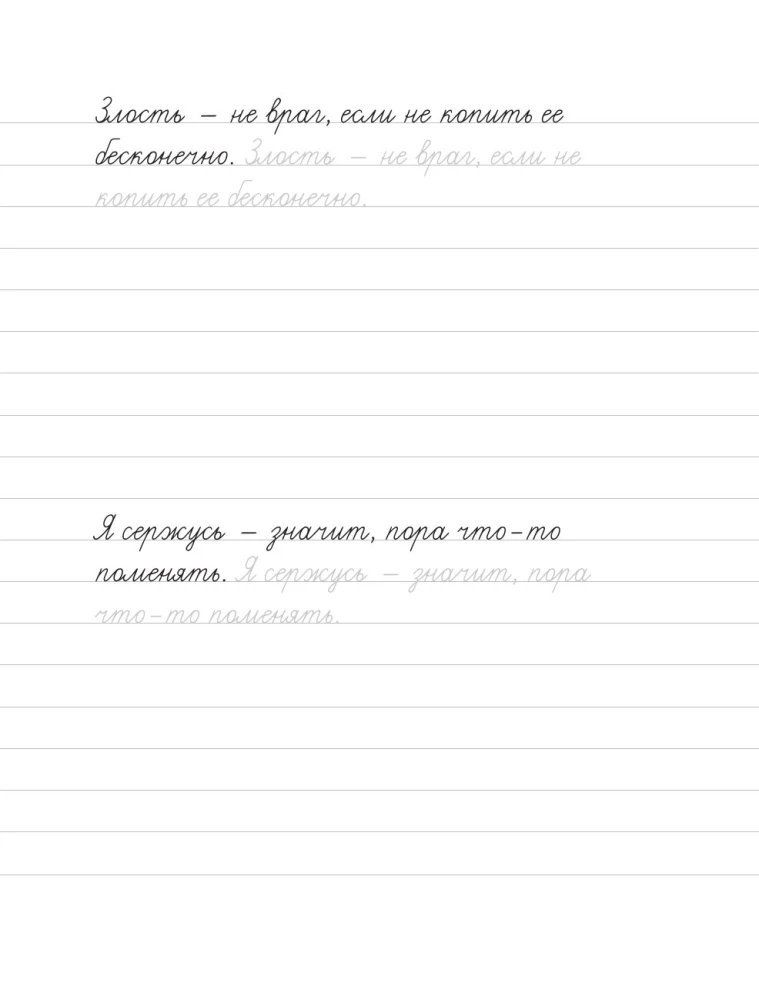 Злость – не враг, если не копить ее
бесконечно. Злость – не враг, если не
копить ее бесконечно.
Я сержусь – значит, пора что-то
поменять. Я сержусь – значит, пора
что-то поменять.